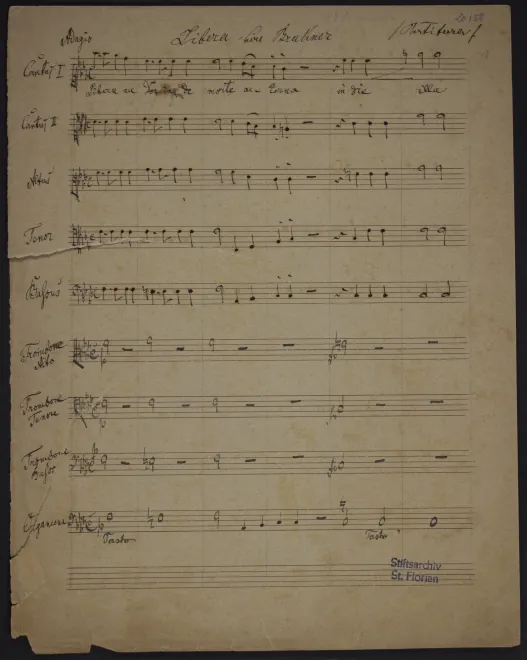 20/22
Adagio Libera von Bruckner /Partitura/
Cantus I
Libera me Domine de morte aeterna in die illa
Cantus II
Altus
Tenor
Bassus
Trombone
Alto
Trombone
Tenore
Trombone
Basso
Organum
Tasto Tasto
Stiftsarchiv
St. Florian